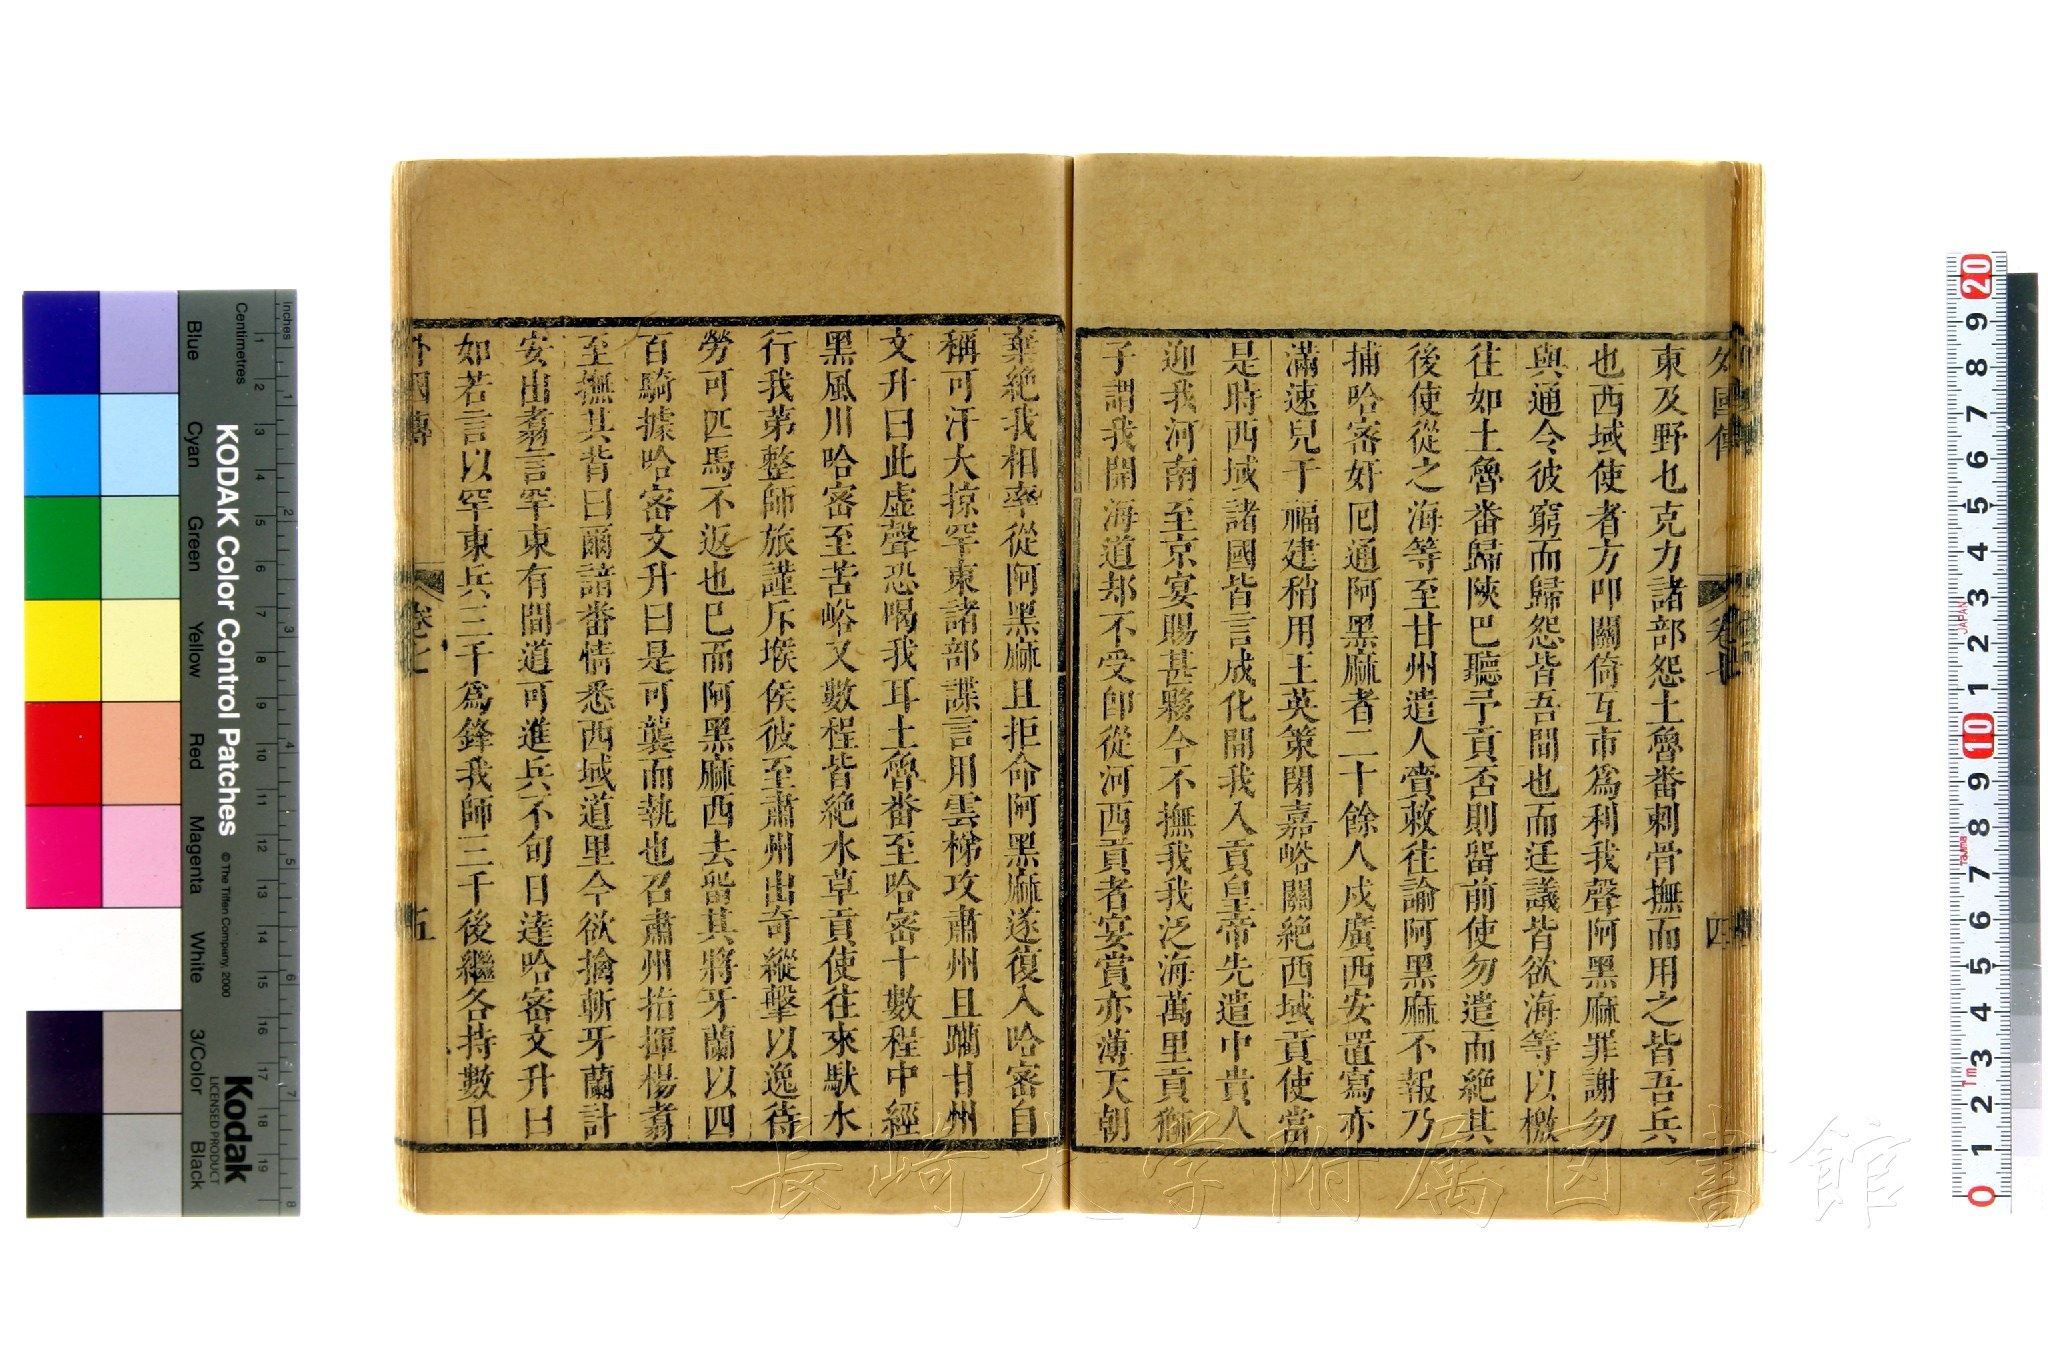 外國傳 卷七 四
東及野乜克力諸部怨土魯番刺骨撫而用之皆吾兵
也西域使者方叩關倚互市爲利我聲阿黑麻罪謝勿
與通令彼窮而歸怨皆吾間也而廷議皆欲海等以檄
往如土魯番歸陝巴聽予貢否則畱前使勿遣而絶其
後使從之海等至甘州遣人賫敕往諭阿黑麻不報乃
捕哈密奸囘通阿黑麻者二十餘人戍廣西安置寫亦
滿速兒于福建稍用王英策閉嘉峪關絶西域貢使當
是時西域諸國皆言成化間我入貢皇帝先遣中貴人
迎我河南至京宴賜甚夥今不撫我我泛海萬里貢獅
子謂我開海道却不受卽從河西貢者宴賞亦薄天朝
棄絶我相率從阿黑麻且拒命阿黑麻遂復入哈密自
稱可汗大掠罕東諸部諜言用雲梯攻肅州且躪甘州
文升曰此虚聲恐喝我耳土魯番至哈密十數程中經
黑風川哈密至苦峪又數程皆絶水草貢使往來馱水
行我第整師旅謹斥堠俟彼至肅州出奇縱擊以逸待
勞可匹馬不返也已而阿黑麻西去畱其將牙蘭以四
百騎據哈密文升曰是可襲而執也召肅州指揮楊翥
至撫其背曰爾諳番情悉西域道里今欲擒斬牙蘭計
安出翥言罕東有間道可進兵不旬日達哈密文升曰
如若言以罕東兵三千爲鋒我師三千後繼各持數日
外國傳 卷七 五
KODAK Color Control Patches
© The Tiffen Company, 2000
Kodak
LICENSED PRODUCT
Inches
Centimetres
Blue
Cyan
Green
Yellow
Red
Magenta
White
3/Color
Black
JAPAN
Tajima
1m
長崎大学附属図書館